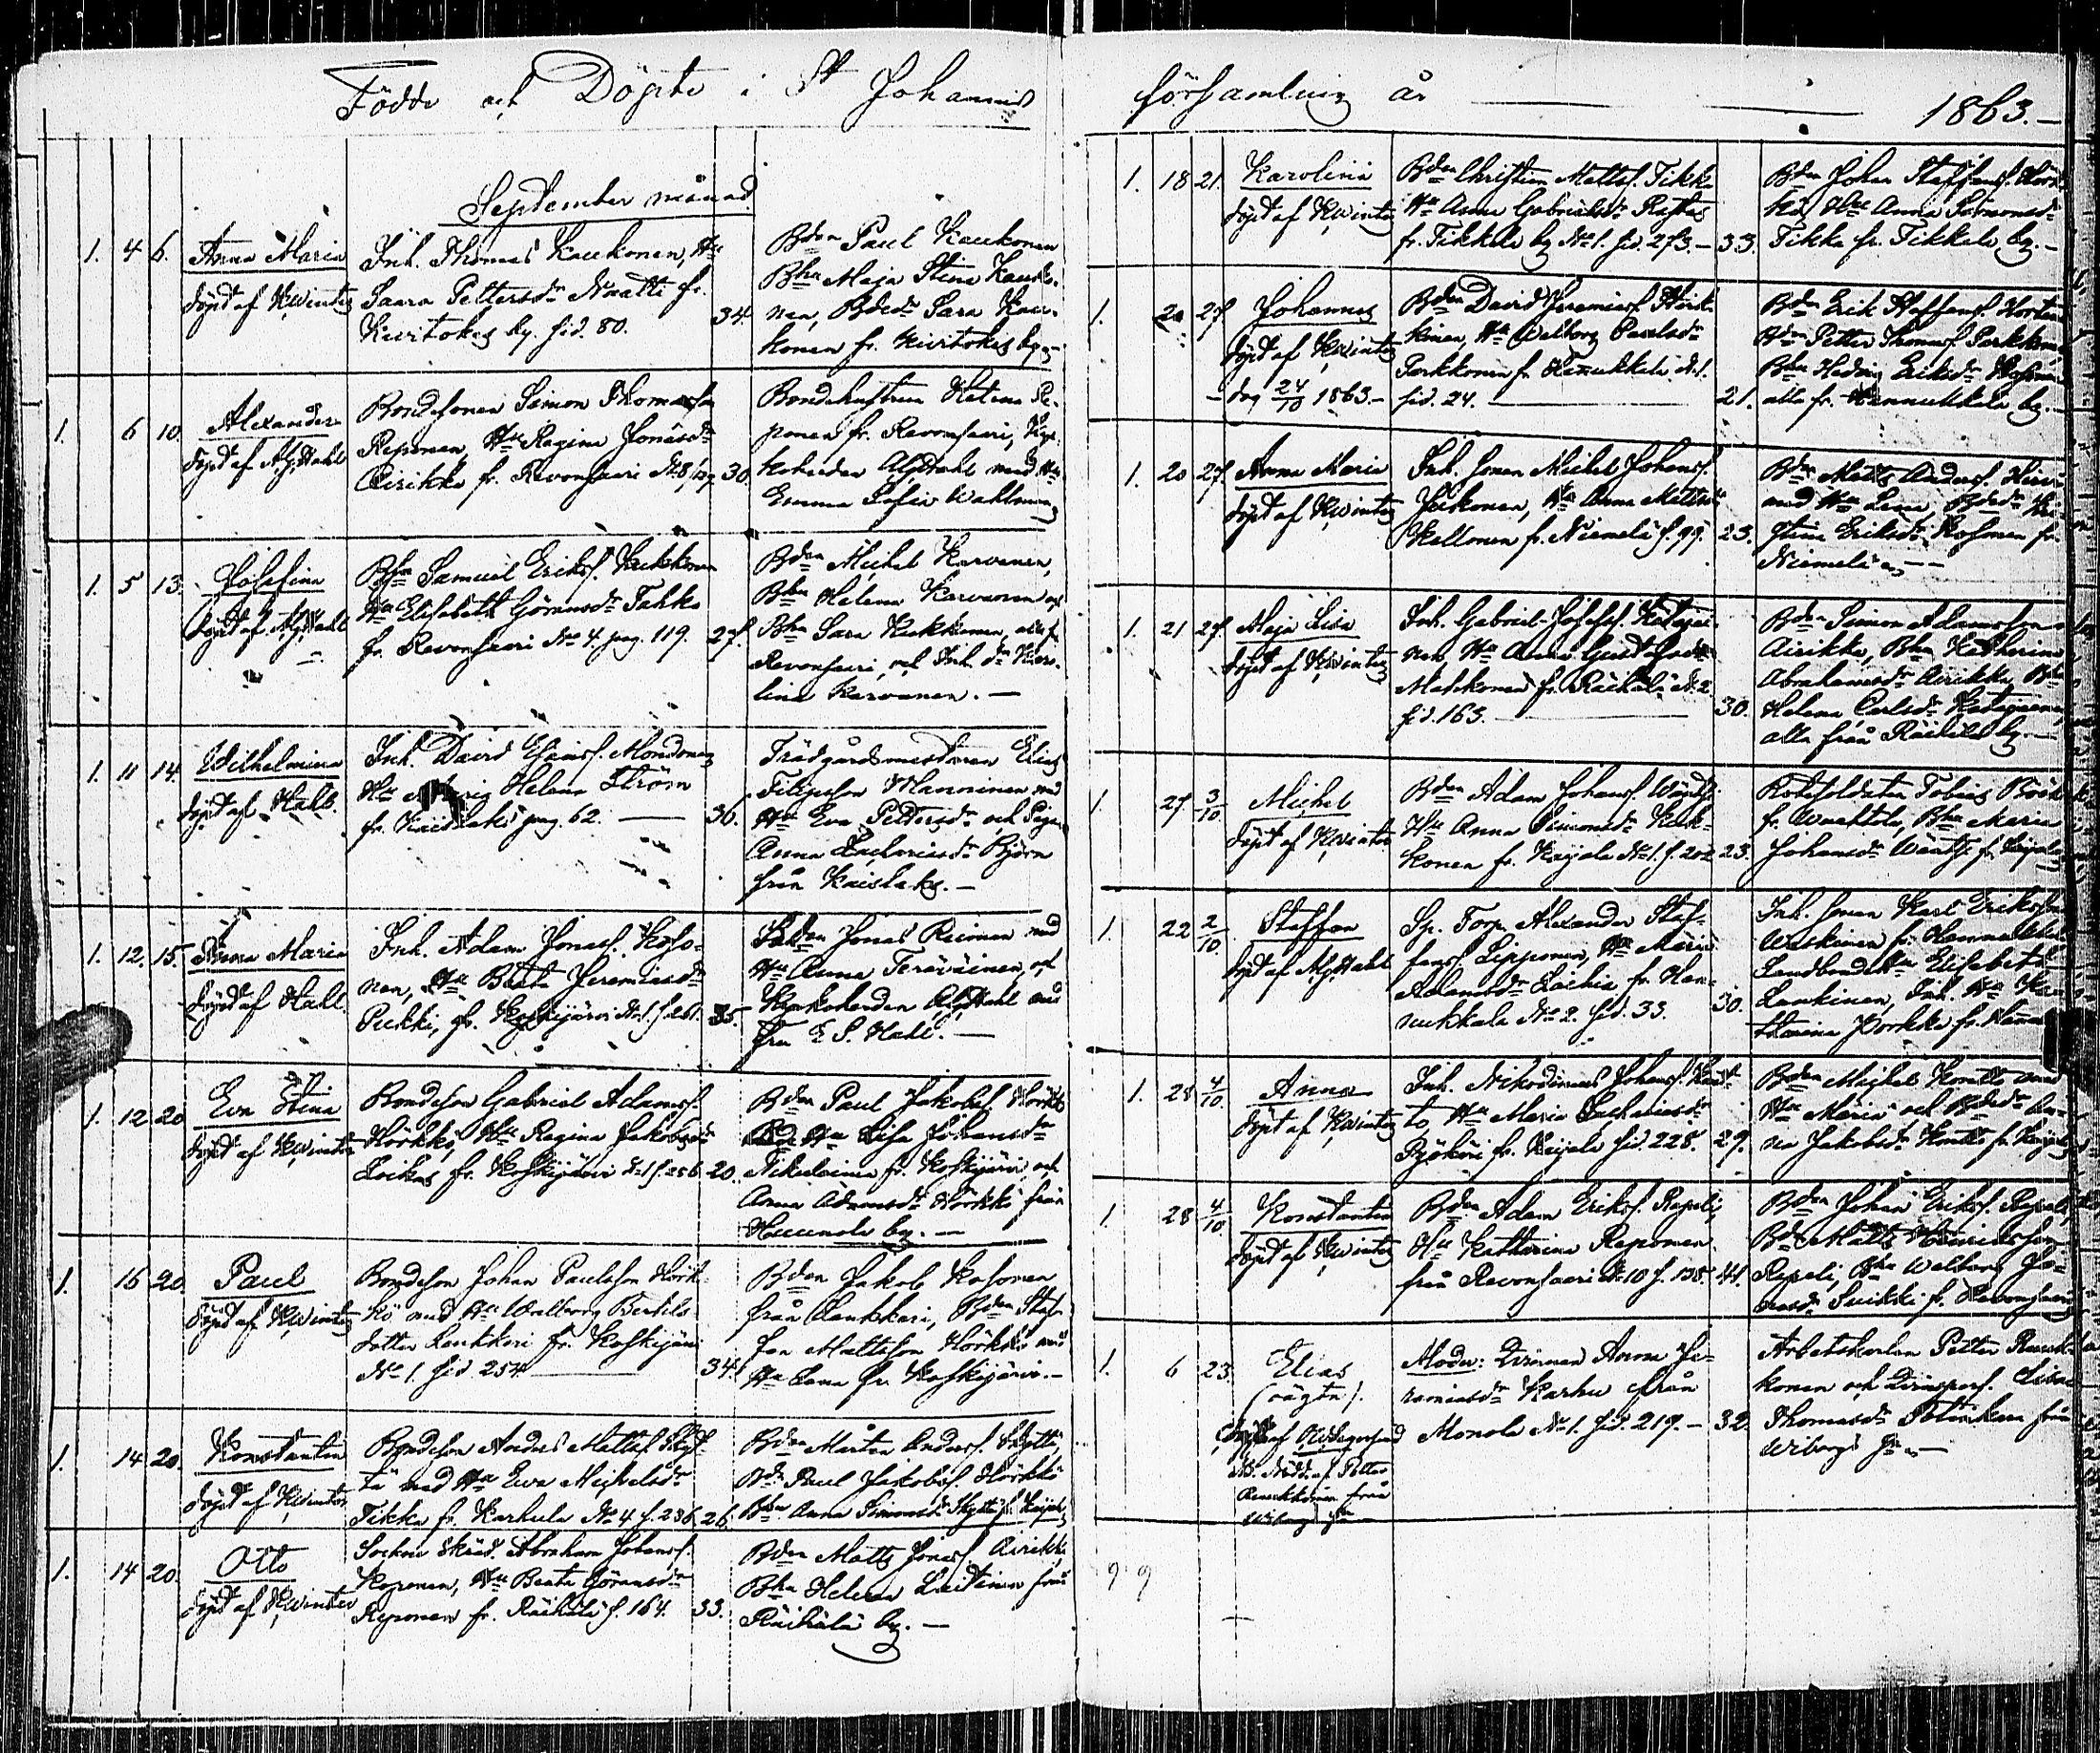 Födde och Döpte i St Johannis
församling år 1863.-
September månad
1. 4 6. Anna Maria
döpt af K,winter
Inh. Thomas Kaukonen, Hu
Saara Pettersdr Naatti fr.
Kuritokes by. sid. 80. 34.
Bden Paul Kaukonen
Bhu Maja Stina Kauko-
nen, Bdedr Sara Kau-
konen fr. Kuritokes by.-
1. 6 10. Alexander
döpt af Alf,Hahl
Bondesonen Simon Thomasson
Reponen, Hu Regina Jonasdr
Airikka fr. Revonsaari No 8, 30.
Bondehustrun Helena Re-
ponen fr. Revonsaari, Kyr-
koherden Alf,Hahl med Hu
Emma Sofia
1. 5 13. Josefina
döpt af Alf,Hahl
Samuel Erikss. Kukkonen
Hu Elisabeth Göransdr Tahka
fr. Revonsaari No 4. pag. 119. 27.
Bden Michel Karvanen,
Bhu Helena Karvanen och
Bhu Sara Kukkonen, alla fr.
Revonsaari, och Inh. dr Karo-
lina Karvanen.-
1. 11 14. Wilhelmina
döpt af Hahl.
Inh. David
Hu Helena Ström
fr. Kaislaks pag. 62. 36.
Trädgårdsmästaren Elias
Filipsson Mannonen med
Hu Eva Pettersdr och Pigan
Anna Zachariasdr Björn
från Kaislaks.-
1. 12. 15. Anna Maria
döpt af Hahl
Inh. Adam Jonass. Koso-
nen, Hu Beata Jeremiasdr
Pukki, fr. Koskijärvi No 1. s. 261. 35.
Jonas Reiman med
Hu Anna Terävainen, och
Kyrkoherden Alf,Hahl med
Fru E S. Hahl.-
1. 12 20 Eva Stina
döpt af K,winter
Bondeson Gabriel Adamss.
Hörkkö, Hu Regina Jakobsdr
Loikas fr. Koskijärvi No 1 s. 256. 20.
Bden Paul Jakobss. Hörkkö
Hu Lisa Johansdr
Nikulainen fr. Koskijärvi, och
Anna Adamsdr Hörkkö från
Huunola by.-
1. 15 20 Paul
döpt af K,winter
Bondeson Johan Paulsson Hörk-
kö med Hu Walborg Bertils-
dotter Lankkeri fr. Koskijärvi
No 1. sid 254. 34.
Bden Jakob Kosonen
från Lankkeri, Bden Staf-
fan Mattsson Hörkkö med
Hu Lena fr. Koskijärvi.-
1. 14 20. Konstantin
döpt af K,winter
Bondeson Anders Mattss. Skyt-
tä med Hu Eva Michelsdr
Tikka fr. Karhula No 4 s. 236. 26.
Bden Martin Anderss. Skyttä,
Bdn Paul Jakobss. Hörkkö
Bhu Anna Simonsdr Skyttä fr. Kaijala
1. 14 20. Otto
döpt af K,winter
Sockne skräd. Abraham Johanss.
Koponen, Hu Beata Göransdr
Reponen fr. Räihälä s. 164. 33.
Bden Matts Jonass. Airikka
Bhu Helena Laitinen från
Räihälä by.-
1. 18 21. Karolina
döpt af K,winter
Bden Christian Mattss. Tikka
Hu Anna Gabrielsdr Rastas
fr. Tikkala by No 1. sid. 273.- 33.
Bden Johan Staffanss. Hörk-
kö, Hu Anna Simonsdr
Tikka fr. Tikkala by.-
1. 20 27 Johannes
döpt af K,winter
- dog 24/10 1863.-
Bden David Jeremiass. Hörk-
könen, Hu Walborg Paulsdr
Parkkonen fr. Hannukkala No 1.
sid. 24. 21.
Bden Erik Staffanss.
Bden Petter Thomass. Parkkonen
Bhu Hedvig Eriksdr Kosonen
alla fr. Hannukkala by.-
1. 20 27. Anna Maria
döpt af K,winter
Inh. sonen Michel Johanss.
Jukonen, Hu Anna Mattsdr
Kellonen fr. Niemelä s. 99. 23.
Bden Matts Anderss.
med Hu Lena, Bdedr Kri-
stina Eriksdr Kosonen fr.
Niemelä.-
1. 21 27. Maja Lisa
döpt af K,winter
Inh. Gabriel Josefss. Katajai-
nen, Hu Anna Gustafsdr
Makkonen fr. Räihälä No 2.
sid. 163. 30.
Bden Simon Adamsson
Airikka, Bhu Katharina
Abrahamsdr Airikka, Bhu
Helena Carlsdr Katajainen,
alla från Räihälä by.-
1. 27. 3/10 Michel
döpt af K,winter
Bden Adam Johanss.
Hu Anna Simonsdr Kuk-
konen fr. Kaijala No 1. s. 202 23.
Rotesoldaten Tobias
fr. Waahtola, Bhu Maria
Johansdr fr. Kaijala
1. 22 2/10. Staffan
döpt af Alf,Hahl
Sp. Torp. Alexander Staf-
fanss. Lipponen, Hu Maria
Adamsdr fr. Han-
nukkala No 2. sid. 33. 30.
Inh. sonen Karl Eriksson
Weskinen fr. Hannukkala
Landbonde Hu Elisabeth
Lankinen, Inh. Hu Ka-
tharina Porkka fr.
1. 28 4/10. Anna
döpt af K,winter
Inh. Nikodemus Johanss.
to, Hu Maria Zachariasdr
fr. Kaijala sid. 228. 29.
Bden Michel Kontto med
Hu Maria och Bdedr An-
na Jakobsdr Kontto fr. Kaijala
1. 28 4/10 Konstantin
döpt af K,winter
Bden Adam Erikss. Repeli,
Hu Katharina Reponen
från Revonsaari No 10 s. 138. 44.
Bden Johan Erikss. Repeli,
Bdn Matts Henriksson
Repeli, Bhu Walborg Jo-
nasdr Suikki fr. Revonsaari
1. 6 23. Elias
(oägta).
Petter
från
Moder: Tjenar Anna Je-
remiasdr Karhu från
Monola No 1. sid. 219.- 32.
Arbetskarlen Petter
konen och Lisa
Thomasdr från
Wiborgs